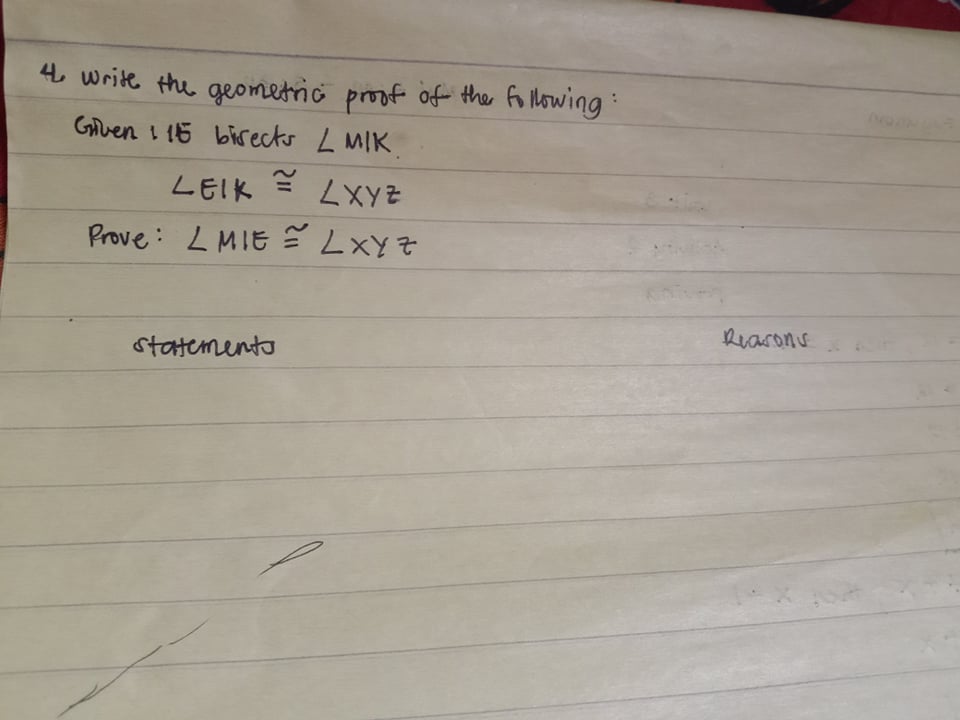 4. Write the geometric proof of the following:
Given: IE bisects ∠MIK.
∠EIK ≅ ∠XYZ
Prove: ∠MIE ≅ ∠XYZ
Statements Reasons